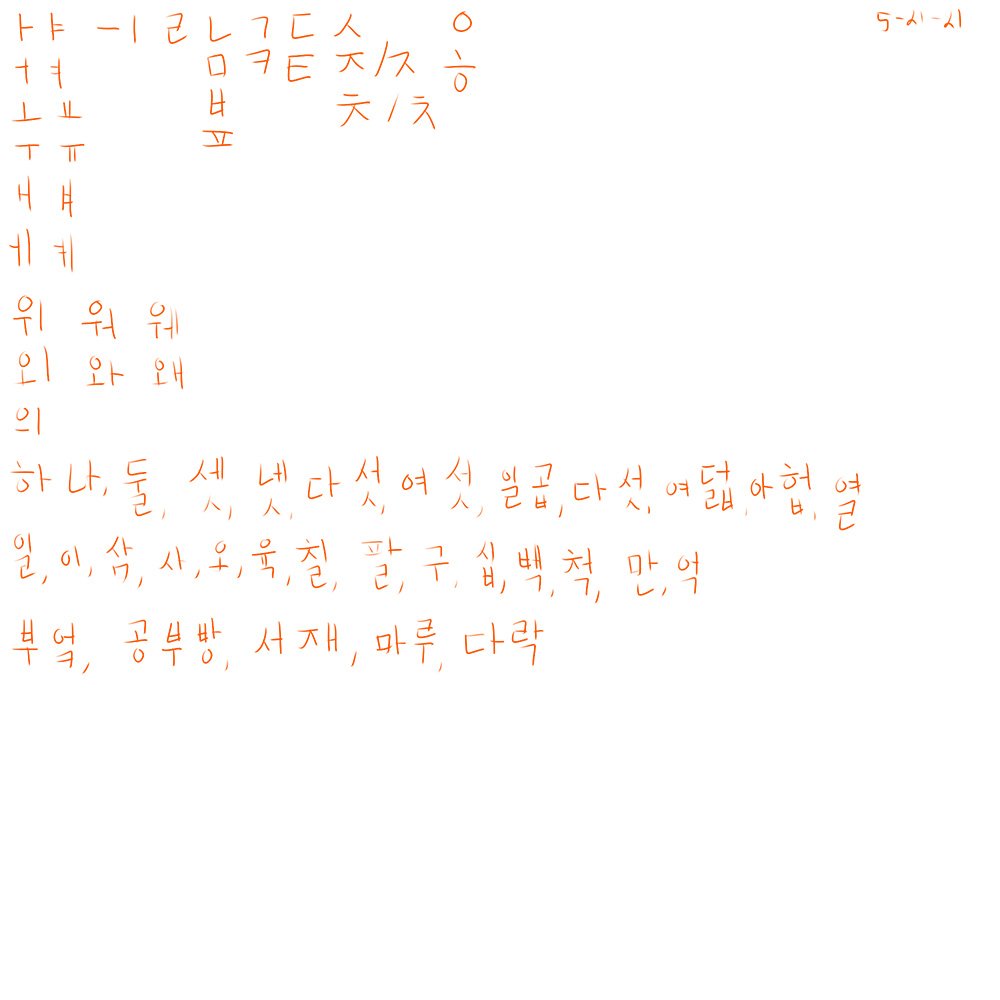 ㅏㅑ ㅡㅣ ㄹ ㄴ ㄱ ㄷ ㅅ ㅇ
ㅓㅕ ㅁ ㅋ ㅌ ㅈ/ㅈ ㅎ
ㅗ ㅛ ㅂ ㅊ/ㅊ
ㅜ ㅠ ㅍ
ㅐ ㅒ
ㅔ ㅖ
위 워 웨
외 와 왜
의
하나, 둘, 셋, 넷, 다섯, 여섯, 일곱, 다섯, 여덟, 아헙, 열
일, 이, 삼, 사, 오, 육, 칠, 팔, 구, 십, 백, 척, 만, 억
부엌, 공부방, 서재, 마루, 다락